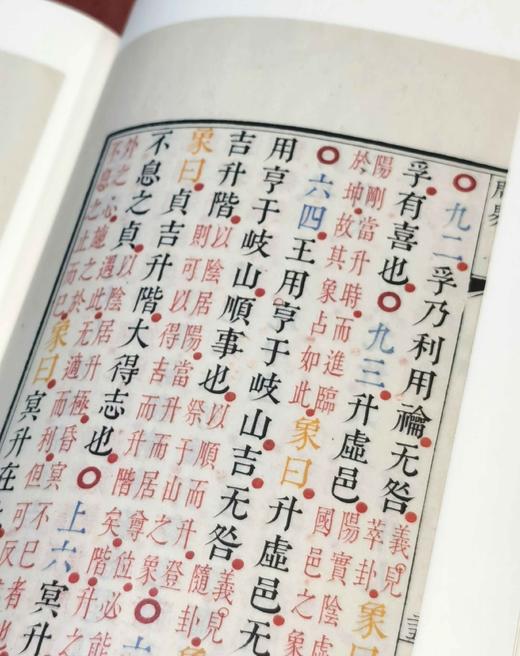 九二孚乃利用禴无咎義見萃卦象曰
孚有喜也九三升虛邑陽實陰虛國邑之象
陽剛當升時而進臨於坤故其象占如此象曰升虛邑无
六四王用亨于岐山吉无咎義見隨卦象
用亨于岐山順事也以順而升登祭于山之象六
吉升階以陰居陽當升而居尊位必能則可以得吉而升階矣階升之
象曰貞吉升階大得志也上六冥升
不息之貞以陰居升極昏冥不已者也遇此无適而利但可反
外之心施之於不息之正而已象曰冥升在